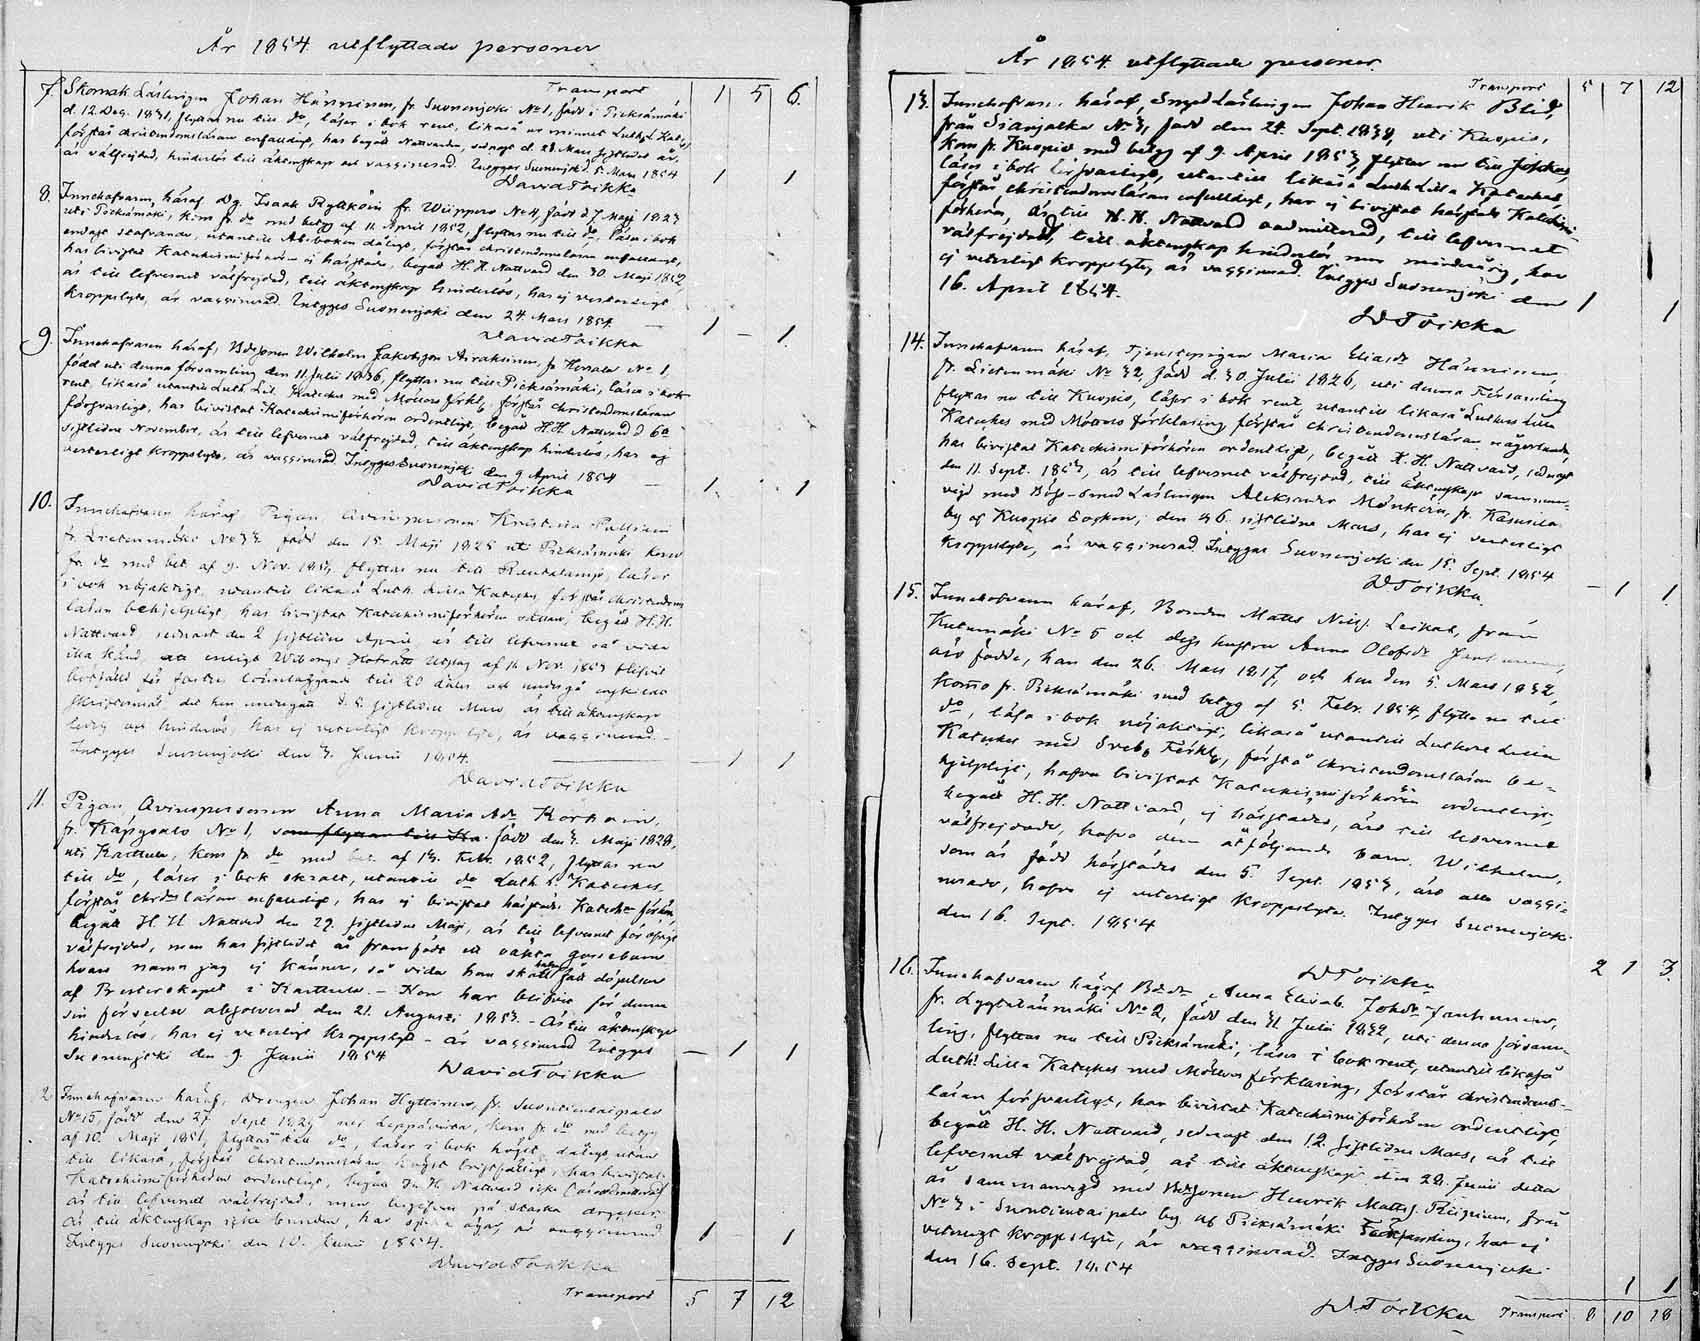 År 1854 utflyttade personer
Transport 1 5 6.
7. Skomak. Lärlingen Johan Hänninen, fr. Suonenjoki No 1, född i Pieksämäki
d. 12 Dec. 1831, flyttar nu till do, läser i bok rent, likaså ur minnet Luth. L. Kat.,
förstår christendomsläran enfaldigt, har begått Nattvarden, sednast d. 28 Mars sistledit år,
är välfrejdad, hinderlös till äktenskap och vaccinerad. Intygas Suonenjoki d. 5. Mars 1854
David Toikka 1 1
8. Innehafvaren häraf Dg. Isaak Rytköin fr. Wiippero No 4, född d 7 Maji 1823
uti Pieksämäki, kom fr. do med betyg af 11 April 1852, flyttar nu till do, läser i bok
endast stafvande, utantill Ab-boken dåligt, förstår christendomsläran enfaldigt,
har bivistat Katechismiförhören ej härstädes, begått H. H. Nattvard den 30 Maji 1852,
är till lefvernet välfrejdad, till äktenskap hinderlös, har ej veterligt
kroppslyte, är vaccinerad. Intygas Suonenjoki den 24 Mars 1854.
David Toikka 1 – 1.
9. Innehafvaren häraf, Bdesonen Wilhelm Jakobsson Airaksinen, fr Herrala No 1,
född uti denna församling den 11 Julii 1836, flyttar nu till Pieksämäki, läser i bok
rent, likaså utantill Luth. Lil. Kateches med Möllers förkl., förstår christendomsläran
försvarligt, har bivistat Katechismiförhören ordentligt, begått H. H. Nattvard d 6te
sistlidne November, är till lefvernet välfrejdad, till äktenskap hinderlös, har ej
veterligt kroppslyte, är vaccinerad. Intygas Suonenjoki den 9 April 1854
David Toikka 1. 1
10. Innehafvaren häraf Pigan Avinspersonen Kristina Pulliain
fr. Lietenmäki No 32 född den 15. Maji 1825 uti Pieksämäki kom
fr. do med bet. af 9. Nov. 1851, flyttar nu till Rautalampi, läser
i bok nöjaktigt, utantill likaså Luth. Lilla Kateches, förstår christendoms
läran behjelpligt, har bivistat Katechismiförhören, begått H. H.
Nattvard sednast den 2 sistlidne April, är till lefvernet så vida
illa känd, att enligt Wiborgs Hofrätts Utslag af 11 Nov. 1853 blifvit
till 20 dalers och undergå enskild
skriftermål det hon undergått d. 5 sistlidne Mars är till äktenskap
ledig och hinderlös, har ej veterligt kroppslyte, är vaccinerad.
Intygas Suonenjoki den 3. Junii 1854. – 1 1
David Toikka
11. Pigan Avinspersonen Anna Maria Adr. Korhoin,
fr. Käpysalo No 1, som flyttar till Ka född den 3. Maji 1828,
uti Karttula, kom fr. do med bet. af 13. Febr. 1852, flyttar nu
till do, läser i bok skralt, utantill do Luth. L. Kateches,
förstår chrdr läran enfaldigt, har ej bivistat härstädes Kateche förhör,
begått H. H Nattvard den 29. sistlidne Maji, är till lefvernet för öfrigt
välfrejdad, men har sistledit år framfödt ett oäkta gossebarn
hvars namn jag ej känner, så vida han skall hafva fått döpelsen
af Presterskapet i Karttula. – Hon har blifvit för denna
sin förseelse absolverad den 21. Augusti 1853. – Är till äktenskap
hinderlös, har ej veterligt kroppslyte – är vaccinerad Intygas
Suonenjoki den 9 Junii 1854 – 1 1
David Toikka
2. Innehafvaren häraf, drengen Johan Hyttinen, fr. Suontientaipale
No 15, född den 27. Sept 1829 uti Leppävirta, kom fr. do med betyg
af 10. Maji 1851, flyttar till do, läser i bok högst dåligt, utan
till likaså, förstår christendomsläran högst bristfälligt, har bivistat
Katechismiförhören ordentligt, begått H. H. Nattvard icke
är till lefvernet välfrejdad, men begifven på starka drycker.
Är till äktenskap icke bunden, har är vaccinerad
Intygas Suonenjoki den 10. Junii 1854. 1 – 1
David Toikka
Transport 5 7 12
År 1854 utflyttade personer.
Transport 5 7 12
13. Innehafvan. häraf Smed Lärlingen Johan Henrik Blid,
från Sianjalka No 3, född den 24. Sept. 1838, uti Kuopio,
kom fr. Kuopio med betyg af 9. April 1853, flyttar nu till Jokkas,
läser i bok försvarligt, utantill likaså Luth. Lilla Kateches,
förstår christendomsläran enfaldigt, har ej bivistat härstädes Katechismi-
förhören, är till H. H. Nattvard oadmitterad, till lefvernet
välfrejdad, till äktenskap hinderlös men minderårig, har
ej veterligt kroppslyte, är vaccinerad. Intygas Suonenjoki den
16. April 1854. 1 1
D Toikka
14. Innehafvaren häraf, Tjenstepigan Maria Eliasdr Hänninen,
fr. Lietenmäki No 32, född d. 30. Julii 1826, uti denna Församling
flyttar nu till Kuopio, läser i bok rent utantill likaså Luthers Lilla
Kateches med Möllers förklaring, förstår christendomsläran någorlunda,
har bivistat Katechismiförhören ordentligt, begått H. H. Nattvard, sednast
den 11. Sept. 1853, är till lefvernet välfrejdad, till äktenskap samman-
vigd med Böss-smed Lärlingen Aleksander Mönköin, fr. Kasurila
by af Kuopio Socken, den 26. sistlidne Mars, har ej veterligt
kroppslyte, är vaccinerad. Intygas Suonenjoki den 15. Sept. 1854
D Toikka. – 1 1.
15. Innehafvaren häraf, Bonden Matts Nilss. Leikas, från
Kutumäki No 5 och dess hustru Anna Olofsdr Jantunen,
äro födde, han den 26. Mars 1817, och hon den 5. Mars 1832,
kommo fr. Pieksämäki med betyg af 5. Febr. 1854, flytta nu till
do, läsa i bok nöjaktigt, likaså utantill Luthers Lilla
Kateches med Svebs Förkl., förstå christendomsläran be-
hjelpligt, hafva bivistat Katechismiförhören ordentligt,
begått H. H. Nattvard, ej härstädes, äro till lefvernet
välfrejdade, hafva dem åtföljande barn. Wilhelm,
som är född härstädes den 5. Sept. 1853, äro alla vacci-
nerade, hafva ej veterligt kroppslyte. Intygas Suonenjoki
den 16. Sept. 1854
D Toikka 2 1 3.
16. Innehafvaren häraf Bdedr Anna Elisab. Johsdr Jantunen,
fr. Lyytilänmäki No 2, född den 31 Julii 1832, uti denna försam-
ling, flyttar nu till Pieksämäki, läser i bok rent, utantill likaså
Luth. Lilla Kateches med Möllers förklaring, förstår christendoms-
läran försvarligt, har bivistat Katechismiförhören ordentligt,
begått H. H. Nattvard, sednast den 12. sistlidne Mars, är till
lefvernet välfrejdad, är till äktenskap den 28. Junii detta
år sammanvigd med Bdesonen Henrik Mattss. från
No 3 i Suontientaipale by af Pieksämäki har ej
veterligt kroppslyte, är vaccinerad. Intygas Suonenjoki
den 16. Sept. 1854 1 1
D. Toikka Transport 8 10 18